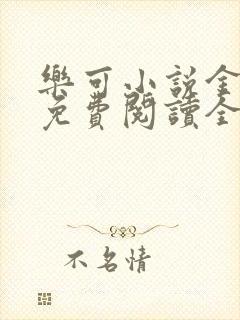 樂可小說全
免費閱讀全
不名情